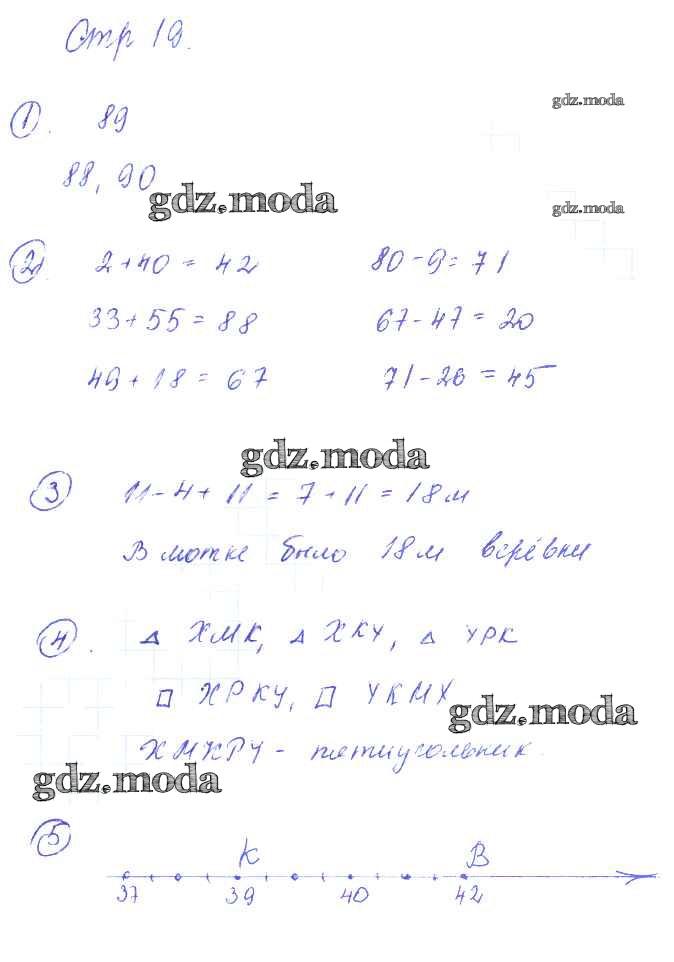 Стр 19.
gdz.moda
1. 89
88, 90
gdz.moda
gdz.moda
2. 2+40 = 42 80-9=71
33+55=88 67-47=20
49+18=67 71-26=45
gdz.moda
3 11-4+11=7+11=18м
В мотке было 18м верёвки
4. △ ХМК, △ ХКУ, △ УРК
▱ ХРКУ, ▱ УКМХ
gdz.moda
ХМКРУ - пятиугольник.
gdz.moda
5
К В
37 39 40 42